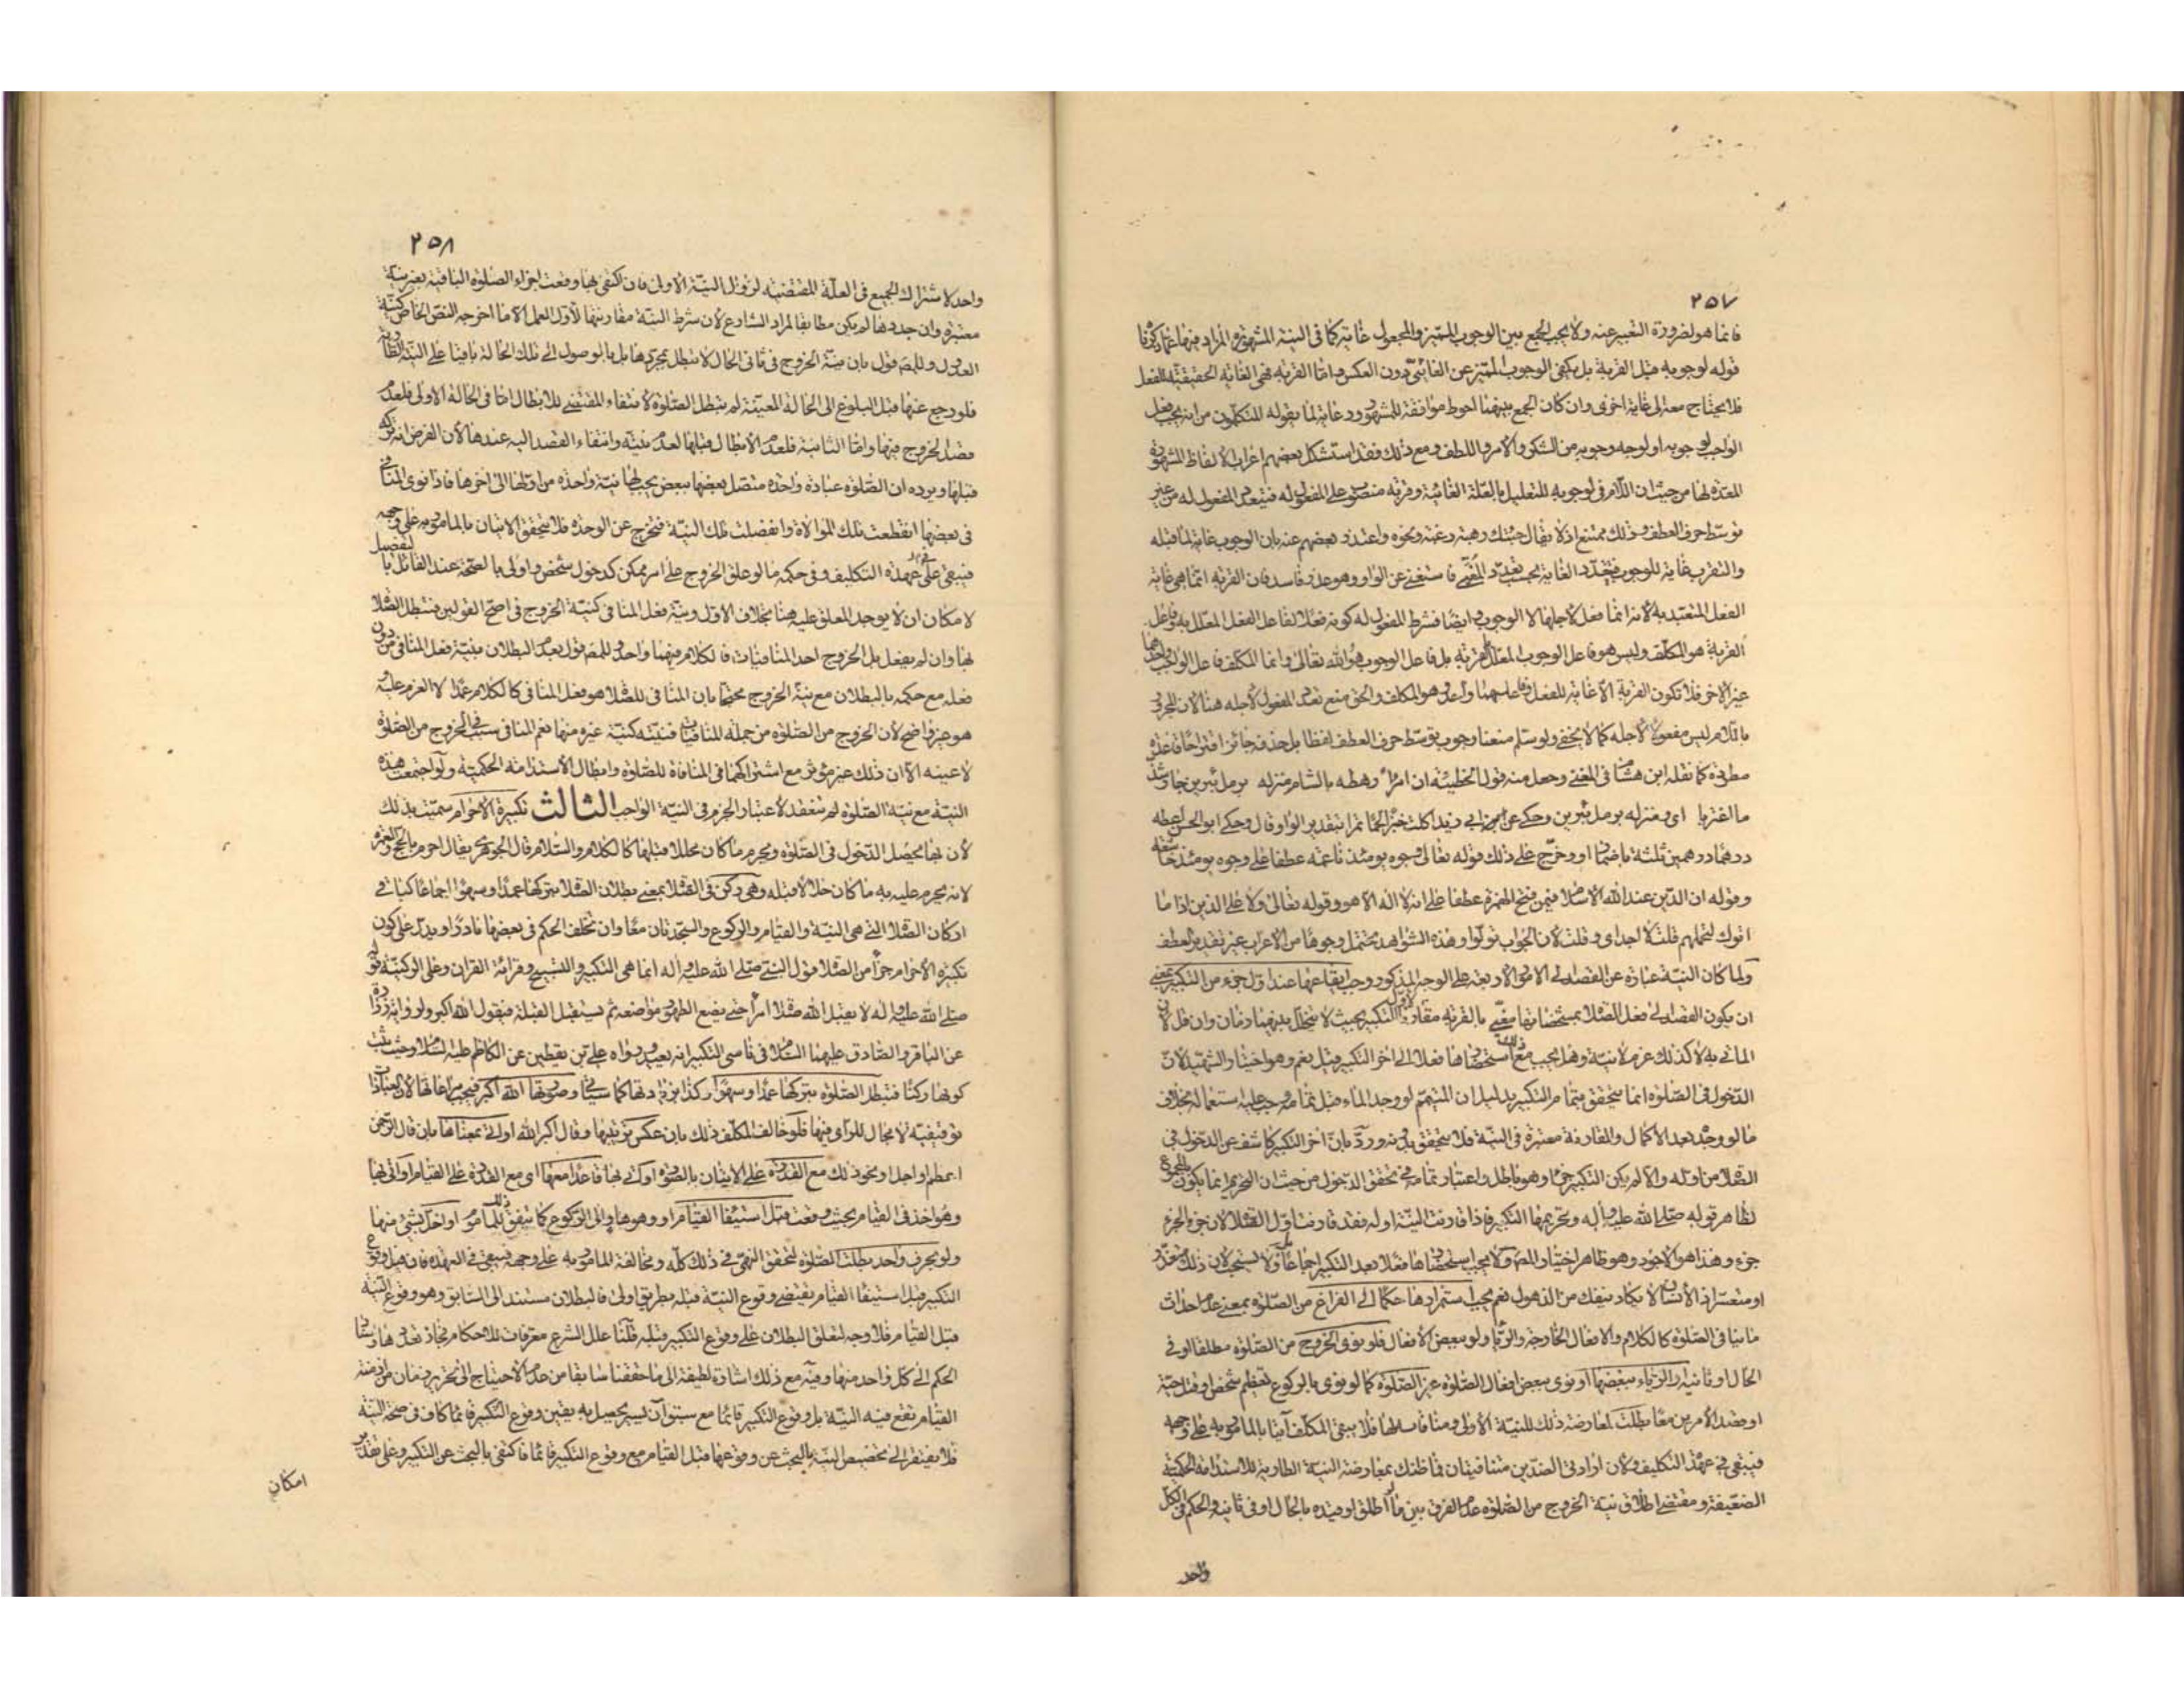 ٢٥٧
فانما هو لضرورة التعبير عنه ولا يجب الجمع بين الوجوب المميز والمجعول غاية كما في النية المشهورة المراد منها
قوله لوجوبه مثل القربة بل يكفي الوجوب المميز عن الغائي دون العكس واما القربة فهي الغاية الحقيقية للفعل
فلا يحتاج معه الى غاية اخرى وان كان الجمع بينهما احوط موافقة للمشهور ورعاية لما يقوله المتكلمون من انه يجب فعل
الواجب لوجوبه او لوجه وجوبه من الشكر والامر واللطف ومع ذلك فقد استشكل بعضهم اعراب الالفاظ المشهورة
المعدة لها من حيث ان اللام في لوجوبه للتعليل بالعلة الغائية وقربة منصوب على المفعول له فيتعدد المفعول له من غير
توسط حرف العطف وذلك ممتنع اذ لا يقال جئتك رهبة رغبة ونحوه واعتذر بعضهم عنه بان الوجوب غاية لما قبله
والتقرب غاية للوجوب فتعدد الغاية بحسب تعدد المغيى فاستغنى عن الواو وهو عذر فاسد فان القربة انما هي غاية
الفعل المتعبد به لانه انما فعل لاجلها لا الوجوب وايضا فشرط المفعول له كونه فعلا لفاعل الفعل المعلل به وفاعل
القربة هو المكلف وليس هو فاعل الوجوب المعلل بالقربة بل فاعل الوجوب هو الله تعالى وانما المكلف فاعل الواجب واحدهما
غير الاخر فلا تكون القربة الا غاية للفعل وفاعلهما واحد وهو المكلف والحق منع تعدد المفعول لاجله هنا لان المجرور
باللام ليس مفعولا لاجله كما لا يخفى ولو سلم منعنا وجوب توسط حرف العطف لفظا بل حذفه جائز اقتراحا
مطردة كما نقله ابن هشام في المغني وجعل منه قول الحطيئة ان امرأ رهطه بالشام منزله برمل يبرين جار شذ
ما اغتربا اي ومنزله برمل يبرين وحكي عن ابي زيد اكلت خبزا لحما تمرا بتقدير الواو قال وحكى ابو الحسن اعطه
درهما درهمين ثلثة باضمار او وخرج على ذلك قوله تعالى وجوه يومئذ ناعمة عطفا على وجوه يومئذ خاشعة
وقوله ان الدين عند الله الاسلام فيمن فتح الهمزة عطفا على انه لا اله الا هو وقوله تعالى ولا على الذين اذا ما
اتوك لتحملهم قلت لا اجد اي وقلت لان الجواب تولوا وهذه الشواهد يحتمل وجوها من الاعراب غير تقدير العطف
ولما كان النية عبارة عن القصد الى الامور الاربعة على الوجه المذكور وجب ايقاعها عند اول جزء من التكبير بمعنى
ان يكون القصد الى فعل الصلاة بمشخصاتها مغيى بالقربة مقارنا لاول التكبير بحيث لا يتخلل بينهما زمان وان قل لان
الماتي به لا كذلك عزم لا نية وهل يجب مع ذلك استحضارها فعلا الى اخر التكبير قيل نعم وهو اختيار الشهيد لان
الدخول في الصلوة انما يتحقق بتمام التكبير بدليل ان المتيمم لو وجد الماء قبل تمامه وجب عليه استعماله بخلاف
ما لو وجد بعد الاكمال والمقارنة معتبرة في النية فلا يتحقق بدونه ورد بان اخر التكبير كاشف عن الدخول في
الصلاة من اوله والا لم يكن التكبير جزءا وهو باطل واعتبار تمامه في تحقق الدخول من حيث ان التحريم انما يكون بالمجموع
لظاهر قوله صلى الله عليه واله وتحريمها التكبير فاذا قارنت النية اوله فقد قارنت اول الصلاة لان جزء الجزء
جزء وهذا هو الاجود وهو ظاهر اختيار المص ولا يجب استحضارها فعلا بعد التكبير اجماعا بل ولا يستحب لان ذلك متعذر
او متعسر اذ الانسان لا يكاد ينفك من الذهول نعم يجب استمرارها حكما الى الفراغ من الصلوة بمعنى عدم احداث
ما ينافي الصلوة كالكلام والافعال الخارجة والرياء ولو ببعض الافعال فلو نوى الخروج من الصلوة مطلقا او في
الحال او ثانيه او الرياء ببعضها او نوى ببعض افعال الصلوة غير الصلوة كما لو نوى بالركوع تعظيم شخص او قتل حية
او قصد الامرين معا بطلت لمعارضة ذلك للنية الاولى ومنافاته لها فلا يبقى المكلف آتيا بالمامور به على وجهه
فيبقى في عهدة التكليف ولان ارادتي الضدين متنافيتان فما ظنك بمعارضة النية الطارية للاستدامة الحكمية
الضعيفة ومقتضى اطلاق نية الخروج من الصلوة عدم الفرق بين ما اطلق او قيده بالحال او في ثانيه والحكم في الكل
واحد
٢٥٨
واحد لاشتراك الجميع في العلة المقتضية لزوال النية الاولى فان اكتفى بها وقعت اجزاء الصلوة الباقية بغير نية
معتبرة وان جددها لم يكن مطابقا لمراد الشارع لان شرط النية مقارنتها لاول العمل الا ما اخرجه النص الخاص كنية
العدول وللمص قول بان نية الخروج في ثاني الحال لا تبطل بمجردها بل بالوصول الى تلك الحالة باقيا على النية الطارية
فلو رجع عنها قبل البلوغ الى الحالة المعينة لم تبطل الصلوة لانتفاء المقتضي للابطال اما في الحالة الاولى فلعدم
قصد الخروج فيها واما الثانية فلعدم الابطال قبلها لعدم نيته وانتفاء القصد اليه عندها لان الفرض انه تركه
قبلها ويرده ان الصلوة عبادة واحدة متصل بعضها ببعض يجب لها نية واحدة من اولها الى اخرها فاذا نوى المنافي
في بعضها انقطعت تلك الموالاة وانفصلت تلك النية فتخرج عن الوحدة فلا يتحقق الاتيان بالمامور به على وجهه
فيبقى في عهدة التكليف وفي حكمه ما لو علق الخروج على امر ممكن كدخول شخص واولى بالصحة عند القائل بالتفصيل
لامكان ان لا يوجد المعلق عليه هنا بخلاف الاول ونية فعل المنافي كنية الخروج في اصح القولين فتبطل الصلاة
بها وان لم يفعل بل الخروج احد المنافيات فالكلام فيهما واحد وللمص قول بعدم البطلان بنية فعل المنافي من دون
فعله مع حكمه بالبطلان مع نية الخروج محتجا بان المنافي للصلاة هو فعل المنافي كالكلام عمدا لا العزم عليه
هو غير واضح لان الخروج من الصلوة من جملة المنافيات فنيته كنية غيره منها نعم المنافي سبب في الخروج من الصلوة
لا عينه الا ان ذلك غير مؤثر مع اشتراكهما في المنافاة للصلوة وابطال الاستدامة الحكمية ولو اجتمعت هذه
النية مع نية الصلوة لم تنعقد لاعتبار الجزم في النية الواجب الثالث تكبيرة الاحرام سميت بذلك
لان بها يحصل الدخول في الصلوة ويحرم ما كان محللا قبلها كالكلام والسلام قال الجوهري يقال احرم بالحج والعمرة
لانه يحرم عليه به ما كان حلالا قبله وهي ركن في الصلاة بمعنى بطلان الصلاة بتركها عمدا وسهوا اجماعا كباقي
اركان الصلاة التي هي النية والقيام والركوع والسجدتان معا وان تخلف الحكم في بعضها نادرا ويدل على كون
تكبيرة الاحرام جزءا من الصلاة قول النبي صلى الله عليه واله انما هي التكبير والتسبيح وقرائة القران وعلى الركنية قوله
صلى الله عليه واله لا يقبل الله صلاة امرئ حتى يضع الطهور مواضعه ثم يستقبل القبلة فيقول الله اكبر ولرواية زرارة
عن الباقر والصادق عليهما السلام في ناسي التكبير انه يعيد ورواه علي بن يقطين عن الكاظم عليه السلام وحيث ثبت
كونها ركنا فتبطل الصلوة بتركها عمدا وسهوا وكذا بزيادتها كما سياتي وصورتها الله اكبر فيجب مراعاتها لان العبادات
توقيفية لا مجال للراي فيها فلو خالف المكلف ذلك بان عكس ترتيبها وقال اكبر الله او اتى بمعناها بان قال الرحمن
اعظم او اجل او نحو ذلك مع القدرة على الاتيان بالصورة او اتى بها قاعدا معها اي مع القدرة على القيام او اتى بها
وهو اخذ في القيام بحيث وقعت قبل استيفاء القيام او وهو هاو الى الركوع كما يتفق ذلك للماموم او اخل بشئ منها
ولو بحرف واحد بطلت الصلوة لتحقق النهي في ذلك كله ومخالفة المامور به على وجهه فيبقى في العهدة فان قيل وقوع
التكبير قبل استيفاء القيام يقتضي وقوع النية قبله بطريق اولى فالبطلان مستند الى السابق وهو وقوع النية
قبل القيام فلا وجه لتعلق البطلان على وقوع التكبير قبله قلنا علل الشرع معرفات للاحكام فجاز تعددها
الحكم الى كل واحد منها وفيه مع ذلك اشارة لطيفة الى ما حققنا سابقا من عدم الاحتياج الى تحرير زمان من ازمنة
القيام تقع فيه النية بل وقوع التكبير قائما مع سبق آن يسير يحصل به يقين وقوع التكبير قائما كاف في صحة النية
فلا يفتقر الى تخصيص النية بالبحث عن وقوعها قبل القيام مع وقوع التكبير قائما فاكتفى بالبحث عن التكبير وعلى تقدير
امكان